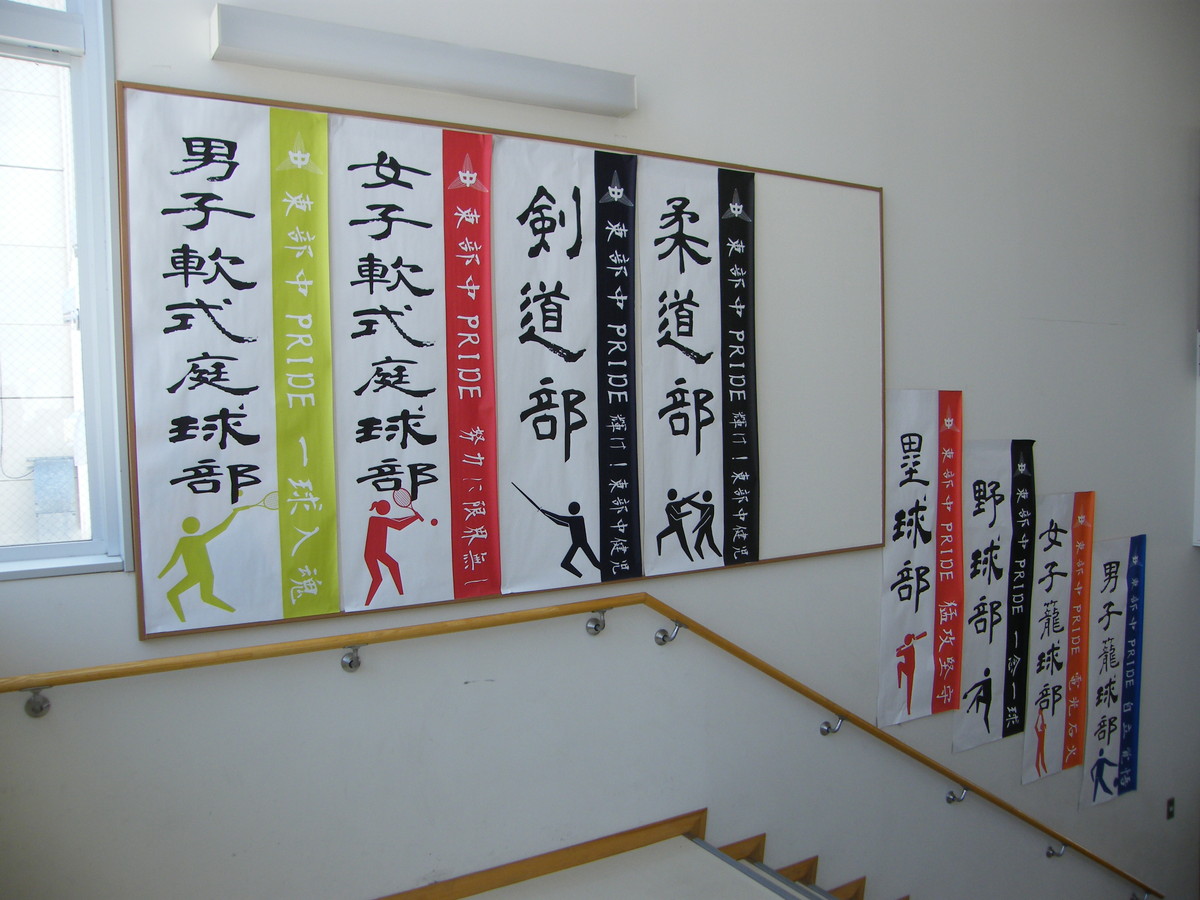 男子軟式庭球部
中 東部中 PRIDE 一球入魂
女子軟式庭球部
中 東部中 PRIDE 努力に限界無し
剣道部
中 東部中 PRIDE 輝け！東部中健児
柔道部
中 東部中 PRIDE 輝け！東部中健児
塁球部
中 東部中 PRIDE 猛攻堅守
野球部
中 東部中 PRIDE 一念一球
女子籠球部
中 東部中 PRIDE 電光石火
男子籠球部
中 東部中 PRIDE